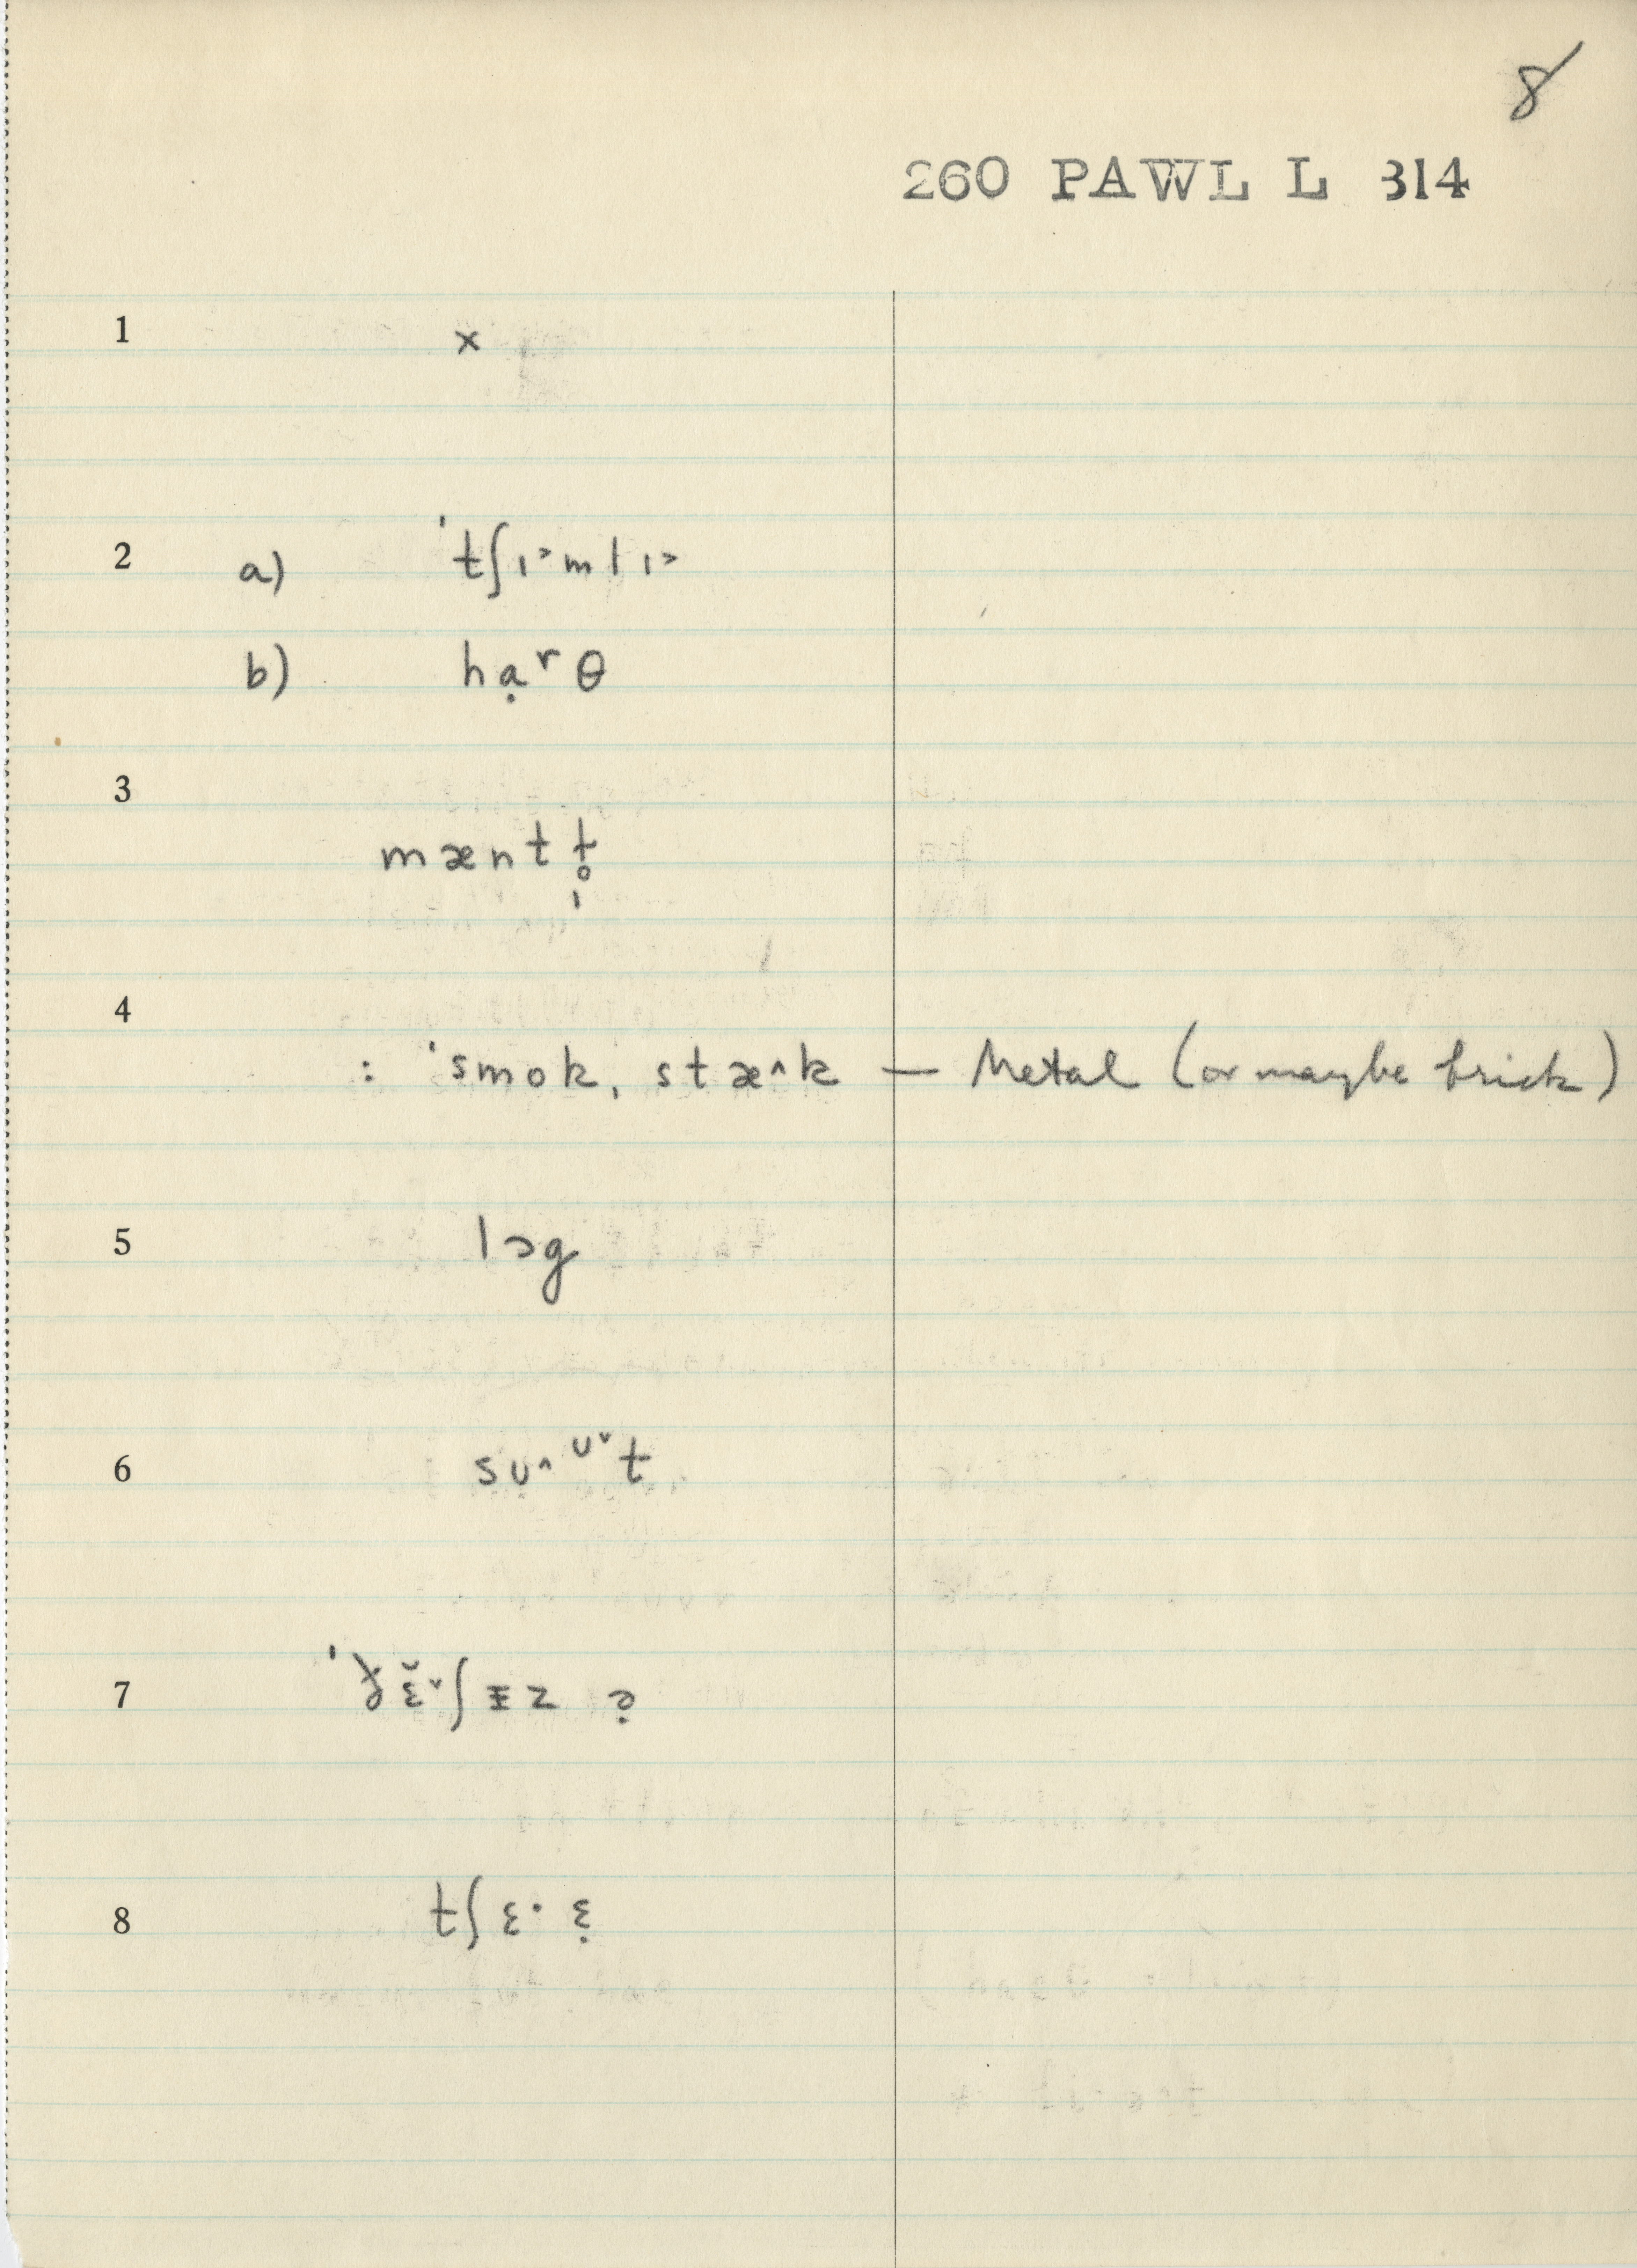 8
260 PAWL L 314
1 x
2 a) ˈtʃɪ˃mlɪ˃
b) hạʳθ
3 mæntɫ̩̥
4 : ˈsmok ˌstæ˄k — Metal (or maybe brick)
5 lɔg
6 sʊ˄ᶷ˅t
8 tʃɛ· ɛ̣